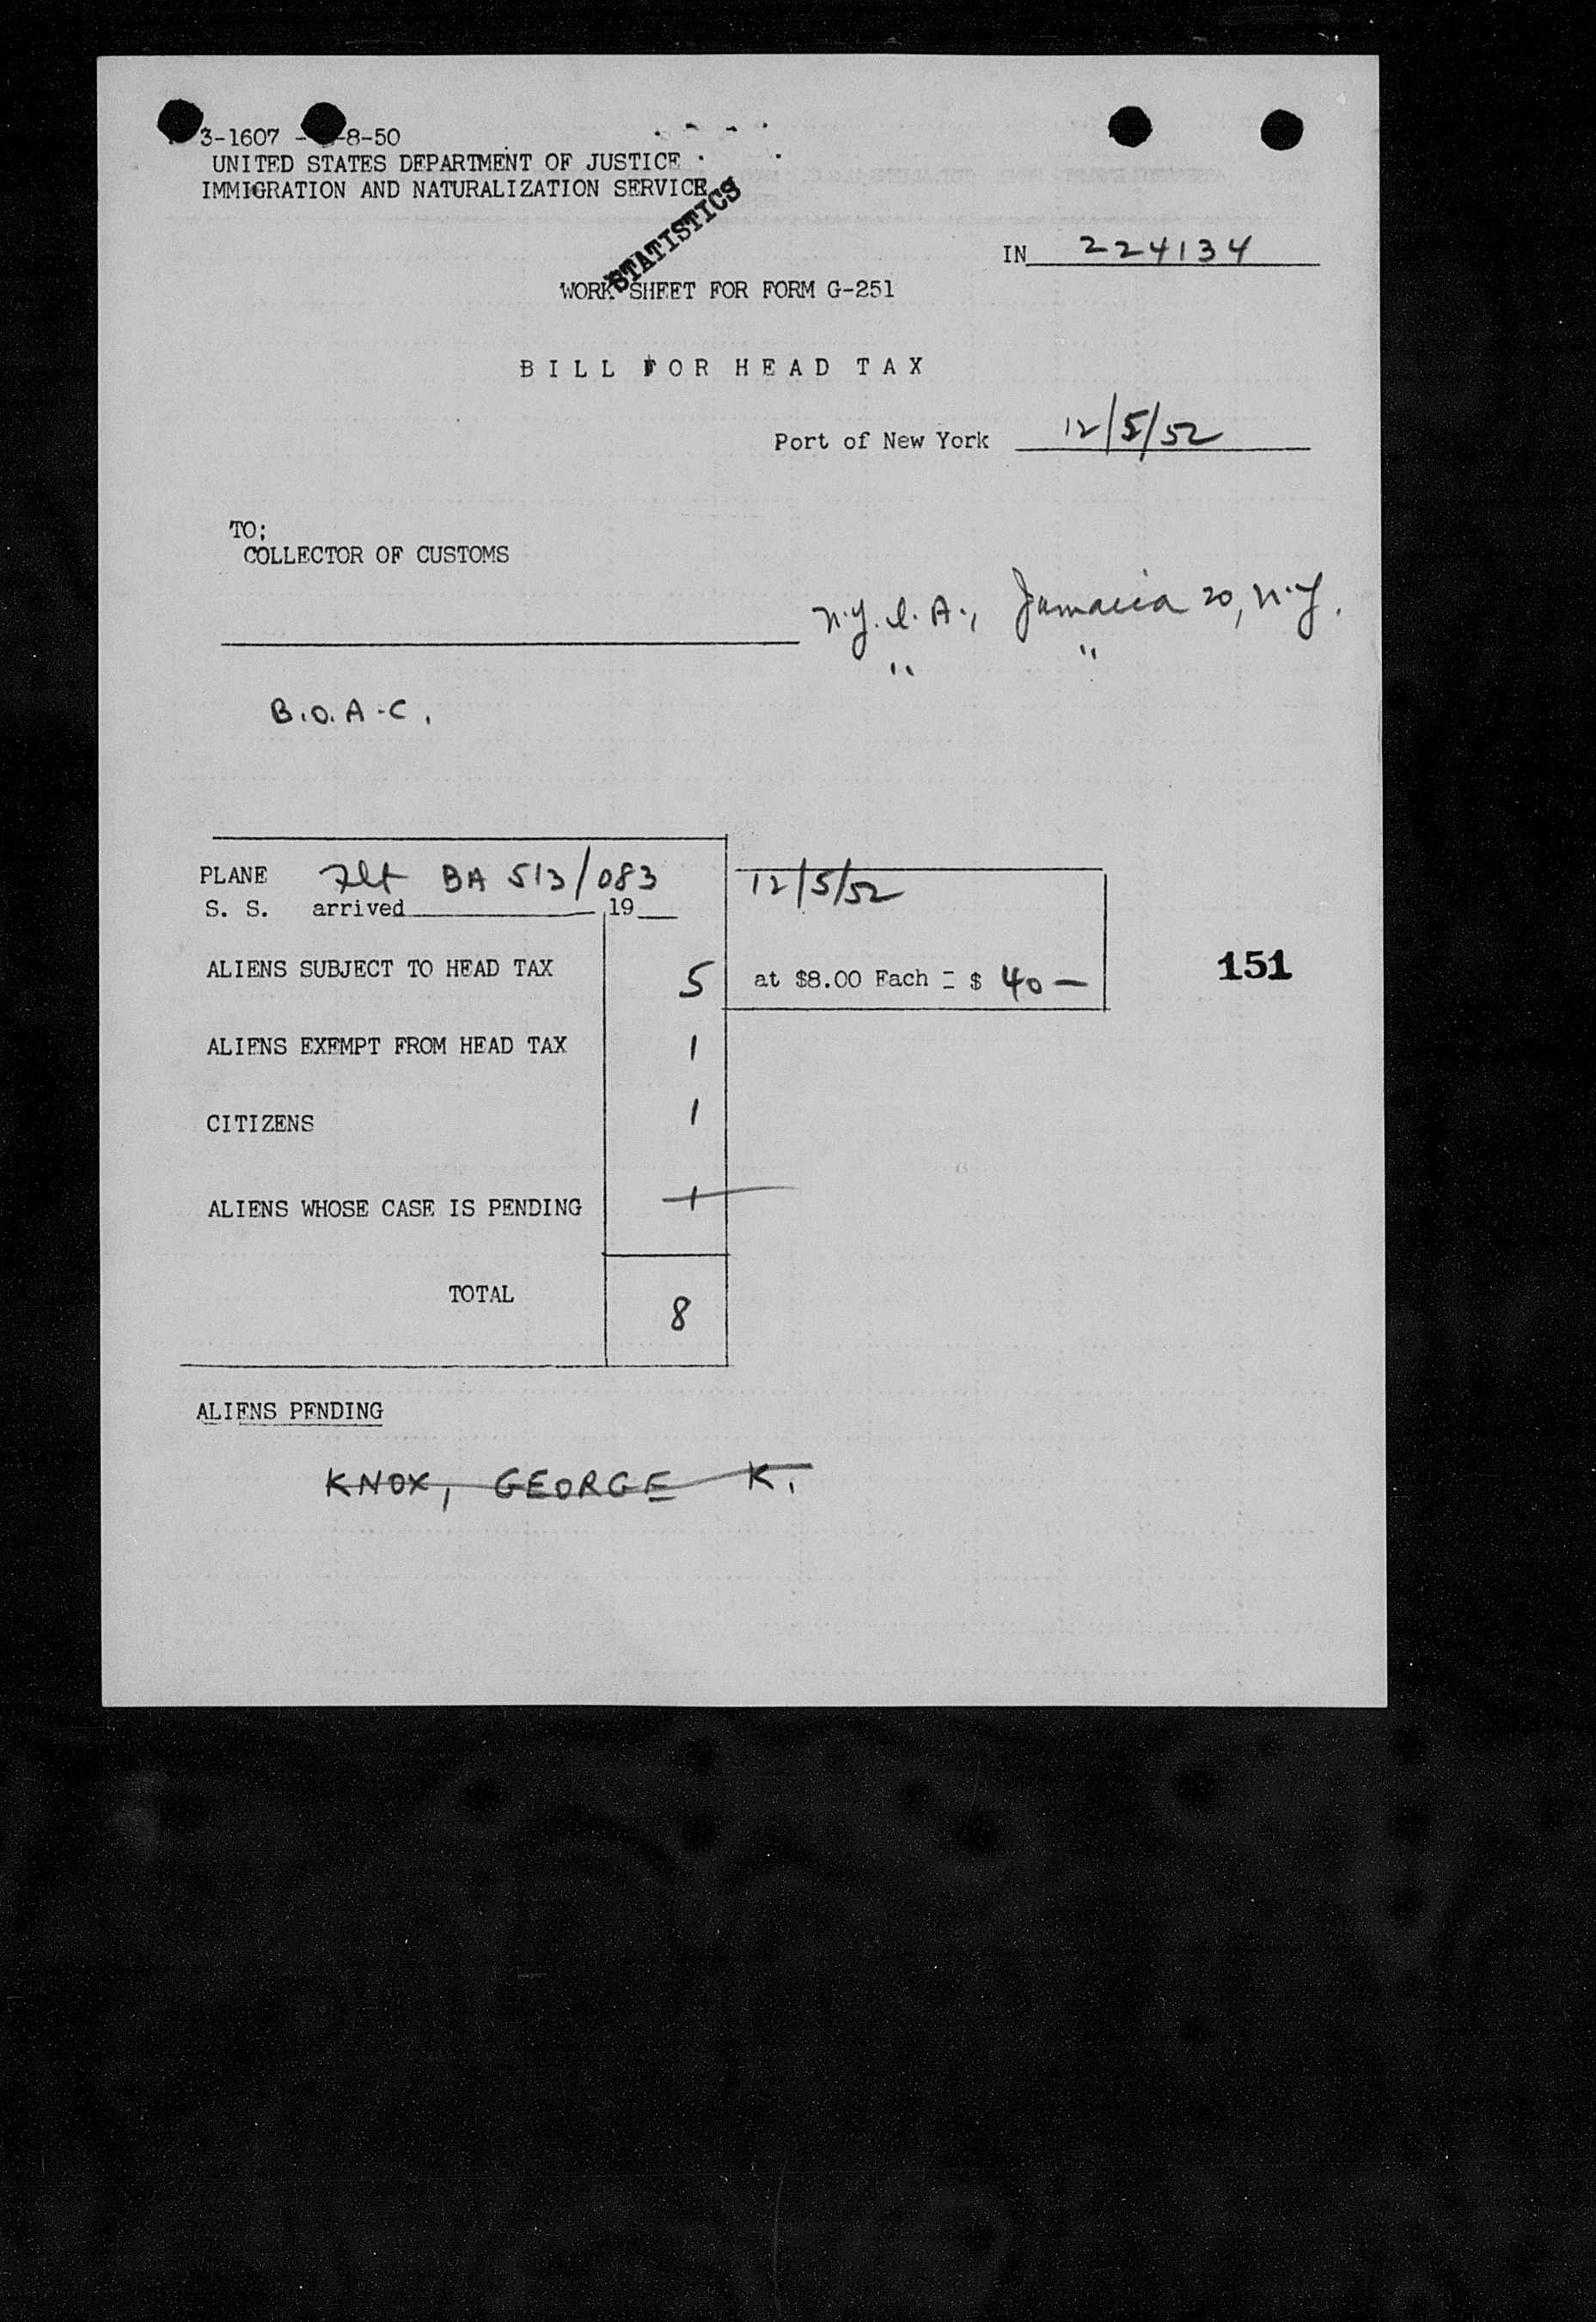 3-1607 - 8-50
UNITED STATES DEPARTMENT OF JUSTICE
IMMIGRATION AND NATURALIZATION SERVICE
STATISTICS
IN 224134
WORK SHEET FOR FORM G-251
BILL FOR HEAD TAX
Port of New York 12/5/52
TO:
COLLECTOR OF CUSTOMS
N.Y.I.A., Jamaica 20, N.Y.
" "
B.O.A.C.
PLANE Flt BA 513/083 12/5/52
S. S. arrived 19
ALIENS SUBJECT TO HEAD TAX 5 at $8.00 Each = $ 40 — 151
ALIENS EXEMPT FROM HEAD TAX 1
CITIZENS 1
ALIENS WHOSE CASE IS PENDING 1
TOTAL 8
ALIENS PENDING
KNOX, GEORGE K.